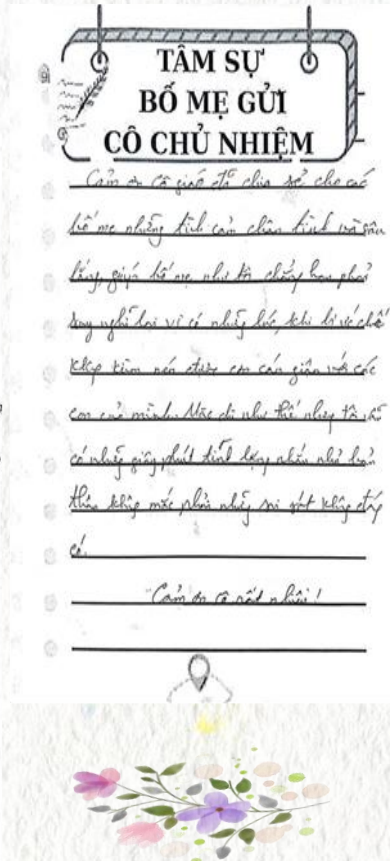 TÂM SỰ
BỐ MẸ GỬI
CÔ CHỦ NHIỆM
Cảm ơn cô giáo đã chia sẻ cho các
bố mẹ những tình cảm chân tình và sâu
lắng, giúp bố mẹ như tôi chẳng hạn phải
suy nghĩ lại vì có những lúc, khi bị ức chế
không kiềm nén được cơn cáu giận với các
con của mình. Mặc dù như thế nhưng tôi
có những giây phút tĩnh lặng nhắn nhủ bản
thân không mắc phải những sai sót không đáng
có.
Cảm ơn cô rất nhiều!